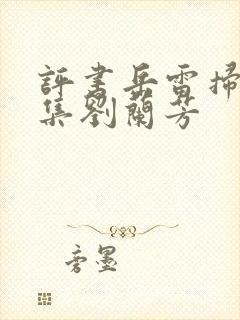 評書岳雷掃
集劉蘭芳
旁墨